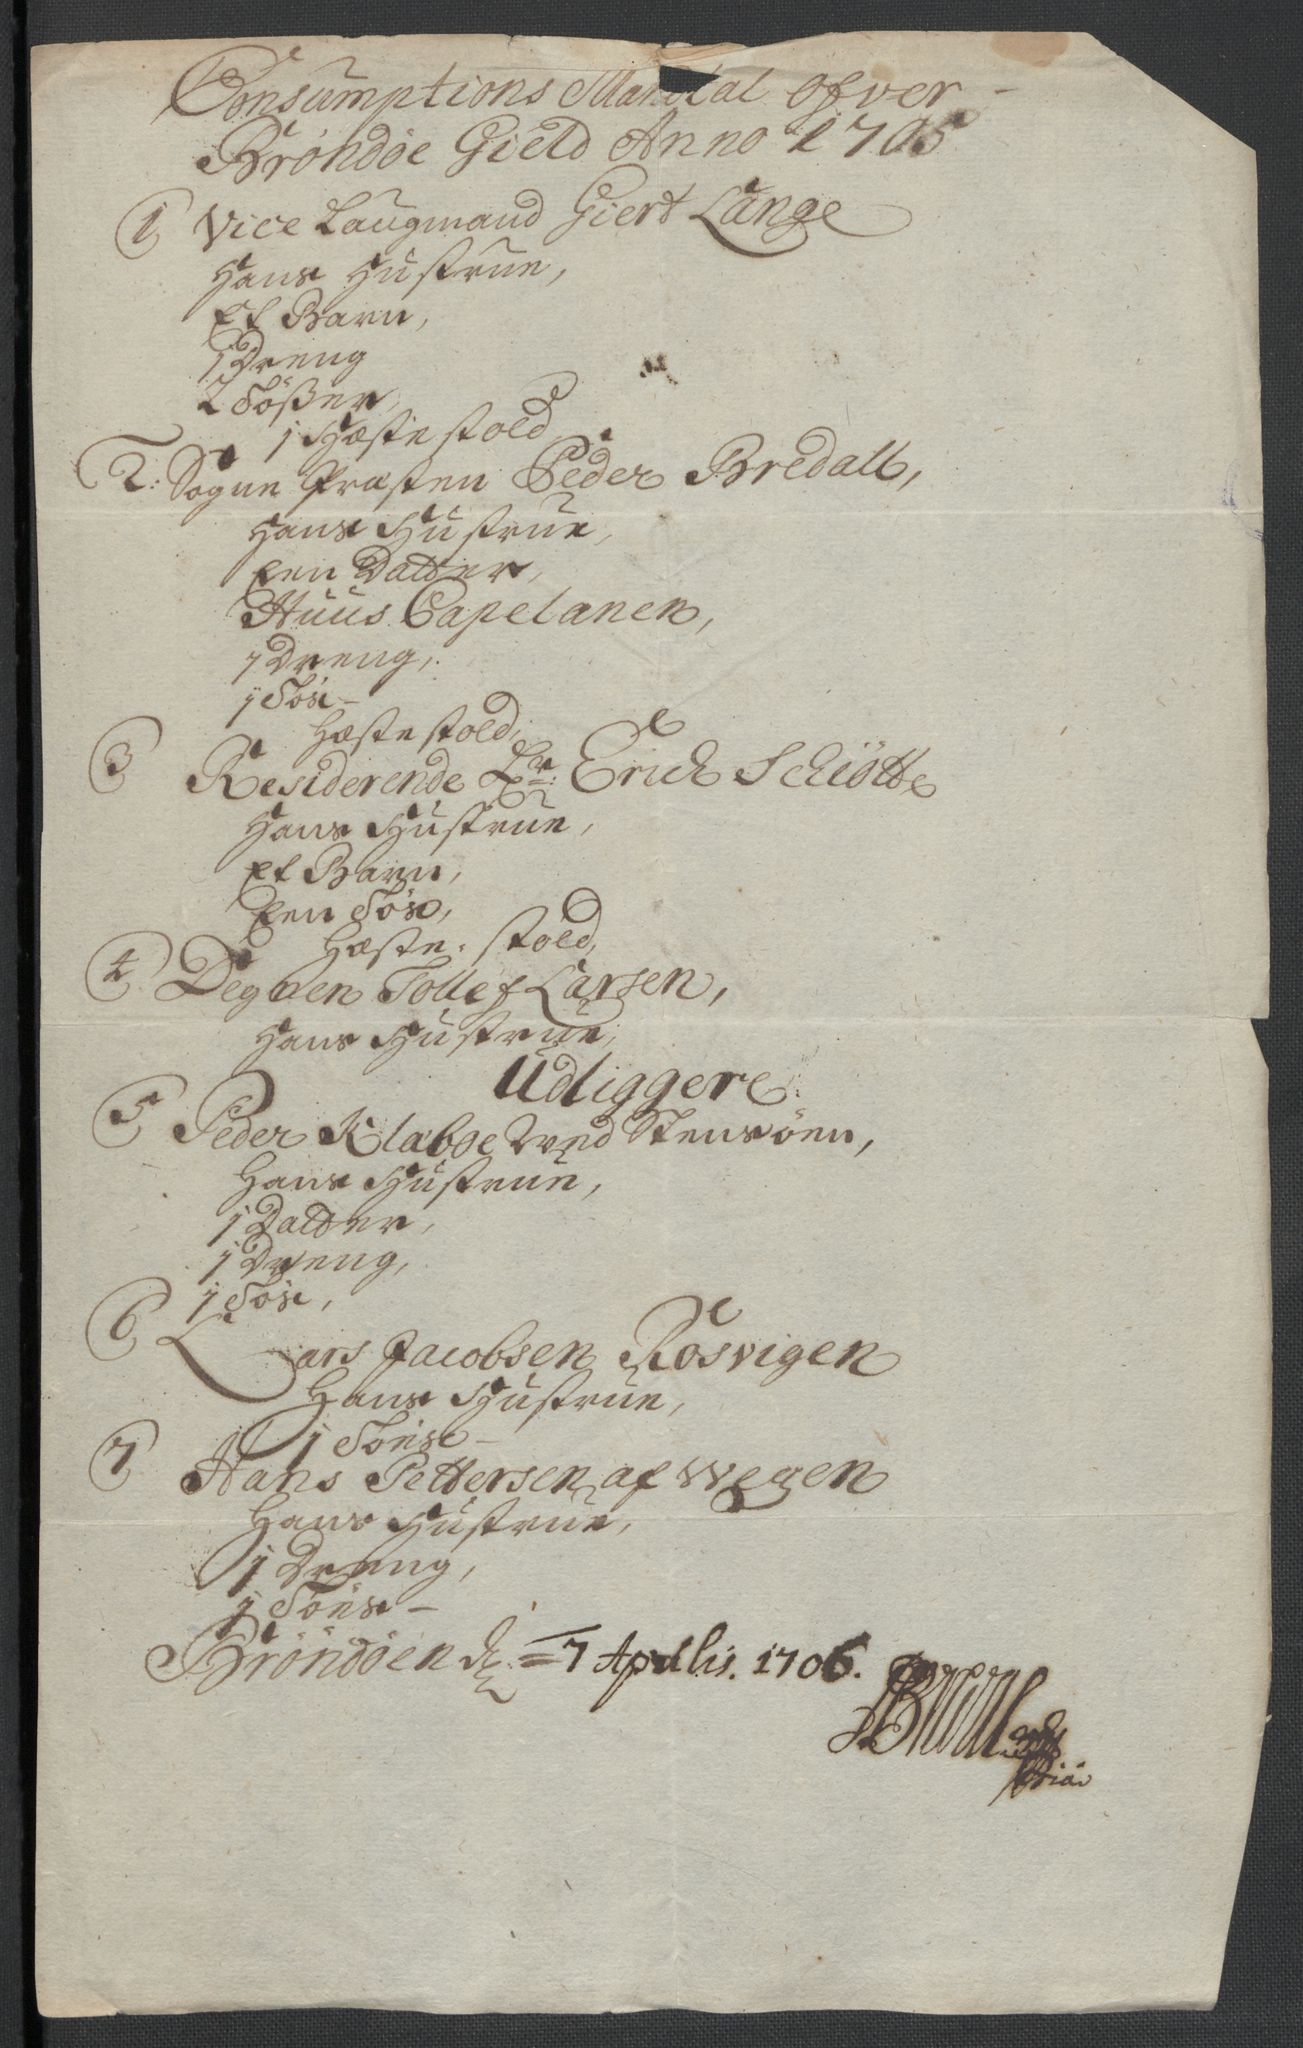 Consumptions Mandtal ofver
Bröndöe Gield Anno 1705
1 Vice Laugmand Giert Lange
Hans Hustrue,
Et Barn,
1 Dreng
2 Tößer,
1 Hæste stold
2: Sogne Præsten Peder Bredall,
Hans Hustrue,
Een Datter,
Huus Capelanen,
1 Dreng,
1 Tös
Hæste stold,
3 Residerende Hr: Erich Schiötte
Hans Hustrue,
Et Barn,
Een Tös,
Hæste stold,
4 Degnen Tollef Larsen,
Hans Hustrue,
Udliggere
5 Peder Klaboe Wed Stensöen,
Hans Hustrue,
1 Datter,
1 Dreng,
1 Tös,
6 Lars Jacobsen Rosvigen
Hans Hustrue,
1 Töns
7 Hans Pettersen af Wegen
Hans Hustrue,
1 Dreng,
1 Töns
Bröndöen d: 7 Aprilis. 1706.
PBredal